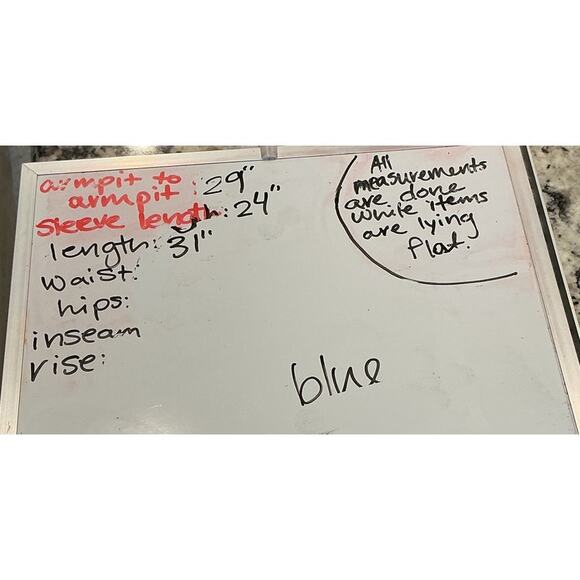 armpit to
armpit : 29"
sleeve length: 24"
length: 31"
waist:
hips:
inseam
rise:
All
measurements
are done
while items
are lying
flat.
blue